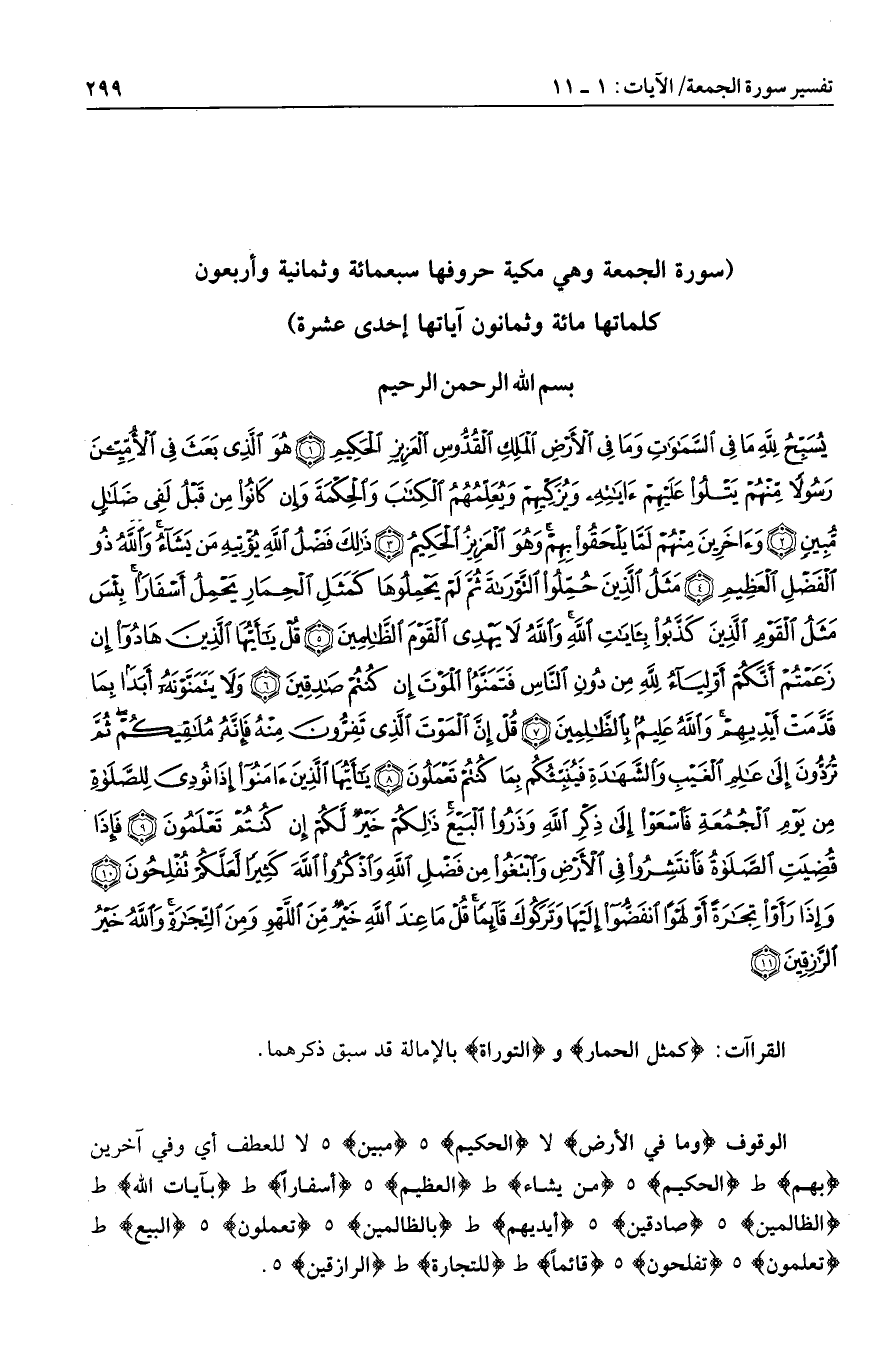 تفسير سورة الجمعة/ الآيات: ١ - ١١ ٢٩٩
(سورة الجمعة وهي مكية حروفها سبعمائة وثمانية وأربعون
كلماتها مائة وثمانون آياتها إحدى عشرة)
بسم الله الرحمن الرحيم
يُسَبِّحُ لِلَّهِ مَا فِى ٱلسَّمَـٰوَٰتِ وَمَا فِى ٱلْأَرْضِ ٱلْمَلِكِ ٱلْقُدُّوسِ ٱلْعَزِيزِ ٱلْحَكِيمِ ﴿١﴾ هُوَ ٱلَّذِى بَعَثَ فِى ٱلْأُمِّيِّـۧنَ
رَسُولًا مِّنْهُمْ يَتْلُوا۟ عَلَيْهِمْ ءَايَـٰتِهِۦ وَيُزَكِّيهِمْ وَيُعَلِّمُهُمُ ٱلْكِتَـٰبَ وَٱلْحِكْمَةَ وَإِن كَانُوا۟ مِن قَبْلُ لَفِى ضَلَـٰلٍ
مُّبِينٍ ﴿٢﴾ وَءَاخَرِينَ مِنْهُمْ لَمَّا يَلْحَقُوا۟ بِهِمْ ۚ وَهُوَ ٱلْعَزِيزُ ٱلْحَكِيمُ ﴿٣﴾ ذَٰلِكَ فَضْلُ ٱللَّهِ يُؤْتِيهِ مَن يَشَآءُ ۚ وَٱللَّهُ ذُو
ٱلْفَضْلِ ٱلْعَظِيمِ ﴿٤﴾ مَثَلُ ٱلَّذِينَ حُمِّلُوا۟ ٱلتَّوْرَىٰةَ ثُمَّ لَمْ يَحْمِلُوهَا كَمَثَلِ ٱلْحِمَارِ يَحْمِلُ أَسْفَارًۢا ۚ بِئْسَ
مَثَلُ ٱلْقَوْمِ ٱلَّذِينَ كَذَّبُوا۟ بِـَٔايَـٰتِ ٱللَّهِ ۚ وَٱللَّهُ لَا يَهْدِى ٱلْقَوْمَ ٱلظَّـٰلِمِينَ ﴿٥﴾ قُلْ يَـٰٓأَيُّهَا ٱلَّذِينَ هَادُوٓا۟ إِن
زَعَمْتُمْ أَنَّكُمْ أَوْلِيَآءُ لِلَّهِ مِن دُونِ ٱلنَّاسِ فَتَمَنَّوُا۟ ٱلْمَوْتَ إِن كُنتُمْ صَـٰدِقِينَ ﴿٦﴾ وَلَا يَتَمَنَّوْنَهُۥٓ أَبَدًۢا بِمَا
قَدَّمَتْ أَيْدِيهِمْ ۚ وَٱللَّهُ عَلِيمٌۢ بِٱلظَّـٰلِمِينَ ﴿٧﴾ قُلْ إِنَّ ٱلْمَوْتَ ٱلَّذِى تَفِرُّونَ مِنْهُ فَإِنَّهُۥ مُلَـٰقِيكُمْ ۖ ثُمَّ
تُرَدُّونَ إِلَىٰ عَـٰلِمِ ٱلْغَيْبِ وَٱلشَّهَـٰدَةِ فَيُنَبِّئُكُم بِمَا كُنتُمْ تَعْمَلُونَ ﴿٨﴾ يَـٰٓأَيُّهَا ٱلَّذِينَ ءَامَنُوٓا۟ إِذَا نُودِىَ لِلصَّلَوٰةِ
مِن يَوْمِ ٱلْجُمُعَةِ فَٱسْعَوْا۟ إِلَىٰ ذِكْرِ ٱللَّهِ وَذَرُوا۟ ٱلْبَيْعَ ۚ ذَٰلِكُمْ خَيْرٌ لَّكُمْ إِن كُنتُمْ تَعْلَمُونَ ﴿٩﴾ فَإِذَا
قُضِيَتِ ٱلصَّلَوٰةُ فَٱنتَشِرُوا۟ فِى ٱلْأَرْضِ وَٱبْتَغُوا۟ مِن فَضْلِ ٱللَّهِ وَٱذْكُرُوا۟ ٱللَّهَ كَثِيرًا لَّعَلَّكُمْ تُفْلِحُونَ ﴿١٠﴾
وَإِذَا رَأَوْا۟ تِجَـٰرَةً أَوْ لَهْوًا ٱنفَضُّوٓا۟ إِلَيْهَا وَتَرَكُوكَ قَآئِمًا ۚ قُلْ مَا عِندَ ٱللَّهِ خَيْرٌ مِّنَ ٱللَّهْوِ وَمِنَ ٱلتِّجَـٰرَةِ ۚ وَٱللَّهُ خَيْرُ
ٱلرَّٰزِقِينَ ﴿١١﴾
القراآت: ﴿كمثل الحمار﴾ و ﴿التوراة﴾ بالإمالة قد سبق ذكرهما.
الوقوف ﴿وما في الأرض﴾ لا ﴿الحكيم﴾ ٥ ﴿مبين﴾ ٥ لا للعطف أي وفي آخرين
﴿بهم﴾ ط ﴿الحكيم﴾ ٥ ﴿من يشاء﴾ ط ﴿العظيم﴾ ٥ ﴿أسفاراً﴾ ط ﴿بآيات الله﴾ ط
﴿الظالمين﴾ ٥ ﴿صادقين﴾ ٥ ﴿أيديهم﴾ ط ﴿بالظالمين﴾ ٥ ﴿تعملون﴾ ٥ ﴿البيع﴾ ط
﴿تعلمون﴾ ٥ ﴿تفلحون﴾ ٥ ﴿قائماً﴾ ط ﴿للتجارة﴾ ط ﴿الرازقين﴾ ٥.